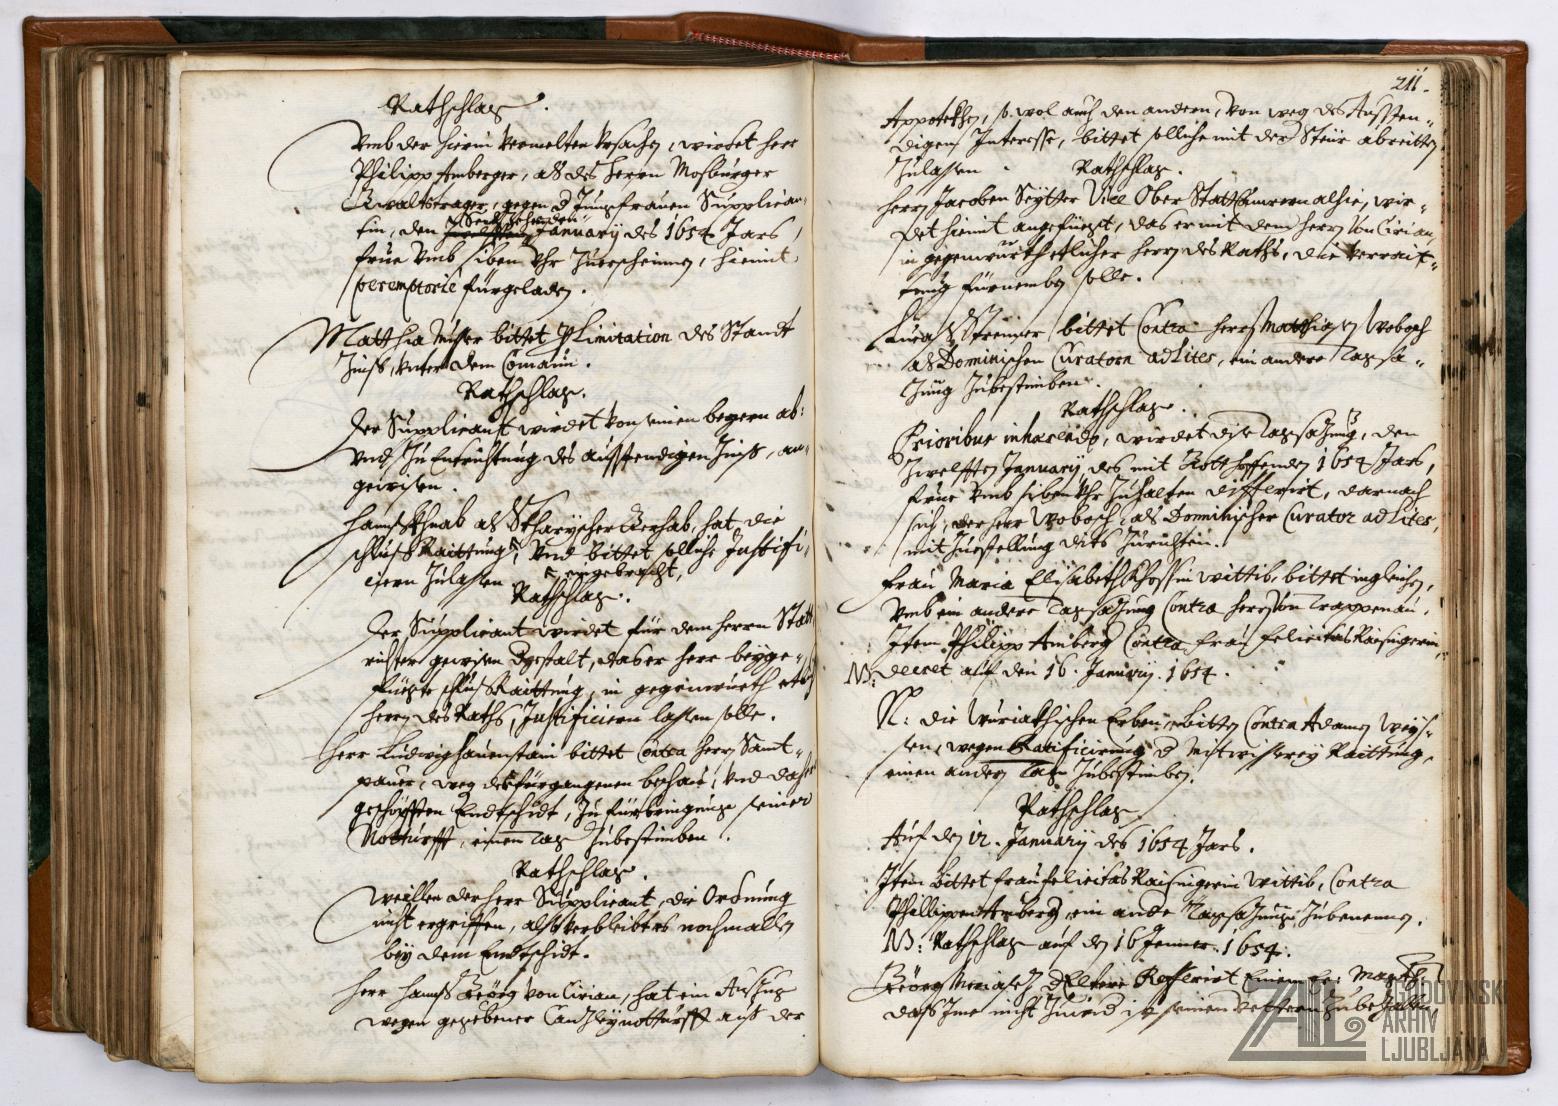 Rathschlag.
Vmb der hierin vermelten vrsachen, wirdet herr
Philipp Amberger, als des herrn Mosburger
Gwaltstrager, gegen d Jungfrauen Supplican-
tin, den Sechzehenden Januarij des 1654 Jars,
frue vmb siben Vhr zuerscheinen, hiemit
peremptorié fürgeladen.
Matthia bittet p Limitation des Standt
Zinss, vnter dem Comaun.
Rathschlag.
Der Supplicant wirdet von seinen begern ab:
vnd zu Entrichtung des ausstendigen Zinss, an-
gewisen.
hannss Khnab als Gerhab, hat die
schluss Raittung, vnd bittet solliche Justifi-
ciern Zulassen eingebracht,
Rathschlag.
Der Supplicant wirdet für dem herrn Statt
richter gewisen dgestalt, das er herr beyge-
füegte schluss Raittung, in gegenwürth etlich
herrn des Raths, Justificiern lassen solle.
herr Ludwig hauenstain bittet Contra herrn Samt-
pauer, weg des fürgangenen beschau, vnd daher
geschöpfften Endtschidt, zu fürbringung seiner
Notturfft, einen tag zubestimben.
Rathschlag.
Weillen der herr Supplicant, die Ordnung
nicht ergriffen, also verbleibt es nochmallen
bey dem Endtschidt.
herr hannss Geörg von Cirian, hat ein Ausszug
wegen gegebener Canzleynotturfft auss der
211.
Appotekhen, so wol auch den andern, von weg des Aussten-
digen Interesse, bittet solliche mit der Steur abraitten
Zulassen. Rathschlag.
herrn Jacoben Seytter Vice Ober Stattkamrern alhie, wir-
det hiemit angefüegt, das er mit dem herrn von Cirian,
in gegenwürth etlicher herrn des Raths, die verrait-
tung fürnemben solle.
Lucas bittet Contra herrn Matthiasen Woboch
als Dominischen Curatorn ad Lites, ein andere Tagsa-
zung Zubestimben.
Rathschlag.
Prioribus inhaerendo, wirdet dise Tagsazung, den
Zwelfften Januarij des mit Gott hoffenden 1654 Jars,
frue vmb siben Vhr zuhalten differiert, darnach
sich, der herr Woboch, als Dominischer Curator ad Lites,
mit Zuestellung dits Zurichten.
Frau Maria Elisabeth wittib, bittet ingleichen,
vmb ein andere Tagsazung Contra herrn von Trappenau.
Item Philipp Amberg Contra Frau Felicitas Raisingerin,
NB: decret auf den 16. Januarij. 1654.
N: die Wuriathischen Erben, bitten Contra Adamen Weys-
sen, wegen Ratificirung d Mitwisserey Raittung,
einen andern Tag Zubestimben.
Rathschlag.
Auf den 12. Januarij des 1654 Jars.
Item bittet frau felicitas Raisingerin Wittib, Contra
Phillippen Amberg, ein andre Tagsazung, Zubenennen.
NB: Rathschlag auf den 16 Jenner. 1654.
Geörg d Eltere Refferirt Einem Er: Magth.
dass Ime nicht Zuwid ist, seinen Vettern zubehalten,
ZAL
ZGODOVINSKI
ARHIV
LJUBLJANA